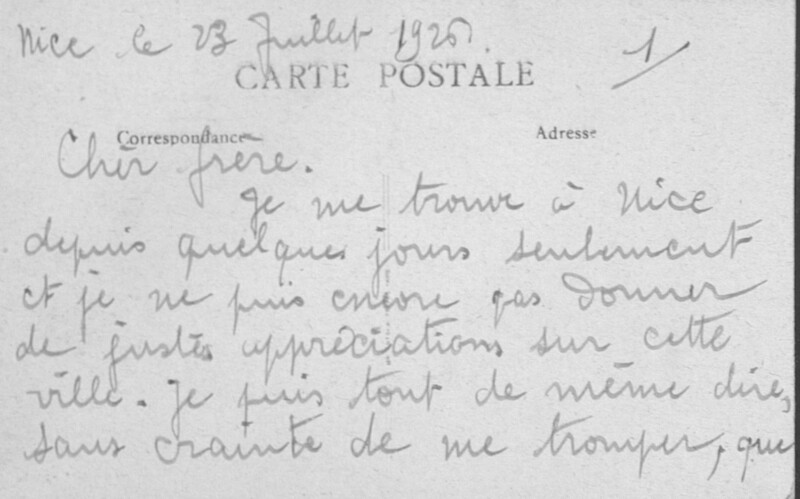 Nice le 23 Juillet 1926.
1
CARTE POSTALE
Correspondance
Adresse
Chèr frère.
Je me trouve à Nice
depuis quelques jours seulement
et je ne puis encore pas donner
de justes appréciations sur cette
ville. Je puis tout de même dire,
sans crainte de me tromper, que